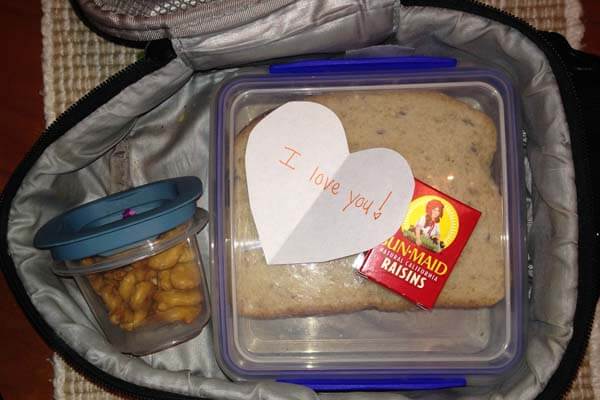 I love you!
SUN-MAID
NATURAL CALIFORNIA
RAISINS